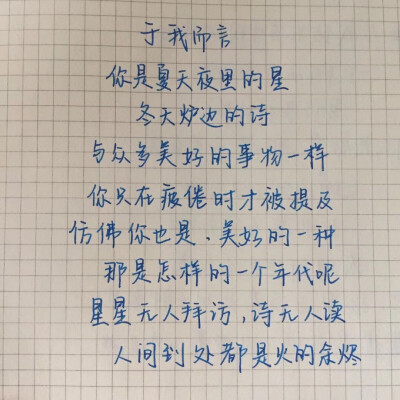 于我而言
你是夏天夜里的星
冬天炉边的诗
与众多美好的事物一样
你只在疲倦时才被提及
仿佛你也是、美好的一种
那是怎样的一个年代呢
星星无人拜访,诗无人读
人间到处都是火的余烬